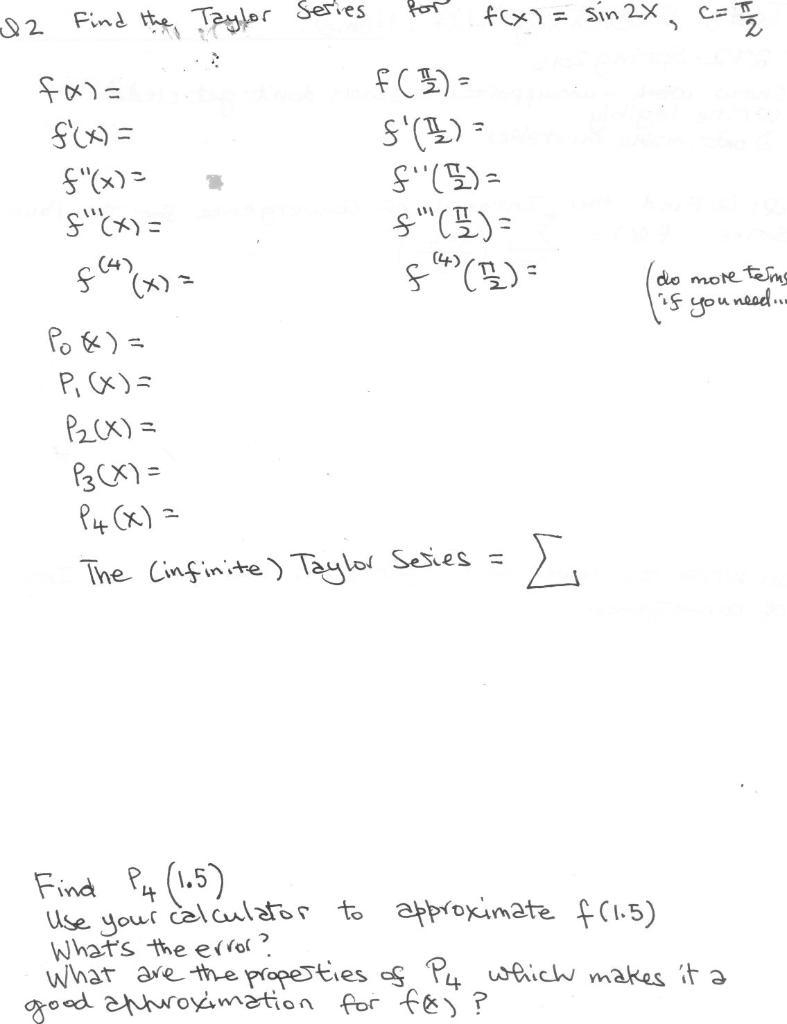 Q2 Find the Taylor Series for f(x) = sin 2x, c = π/2
f(x) = f(π/2) =
f'(x) = f'(π/2) =
f''(x) = f''(π/2) =
f'''(x) = f'''(π/2) =
f⁽⁴⁾(x) = f⁽⁴⁾(π/2) = (do more terms
if you need...
P₀(x) =
P₁(x) =
P₂(x) =
P₃(x) =
P₄(x) =
The (infinite) Taylor Series = Σ
Find P₄(1.5)
Use your calculator to approximate f(1.5)
What's the error?
What are the properties of P₄ which makes it a
good approximation for f(x)?